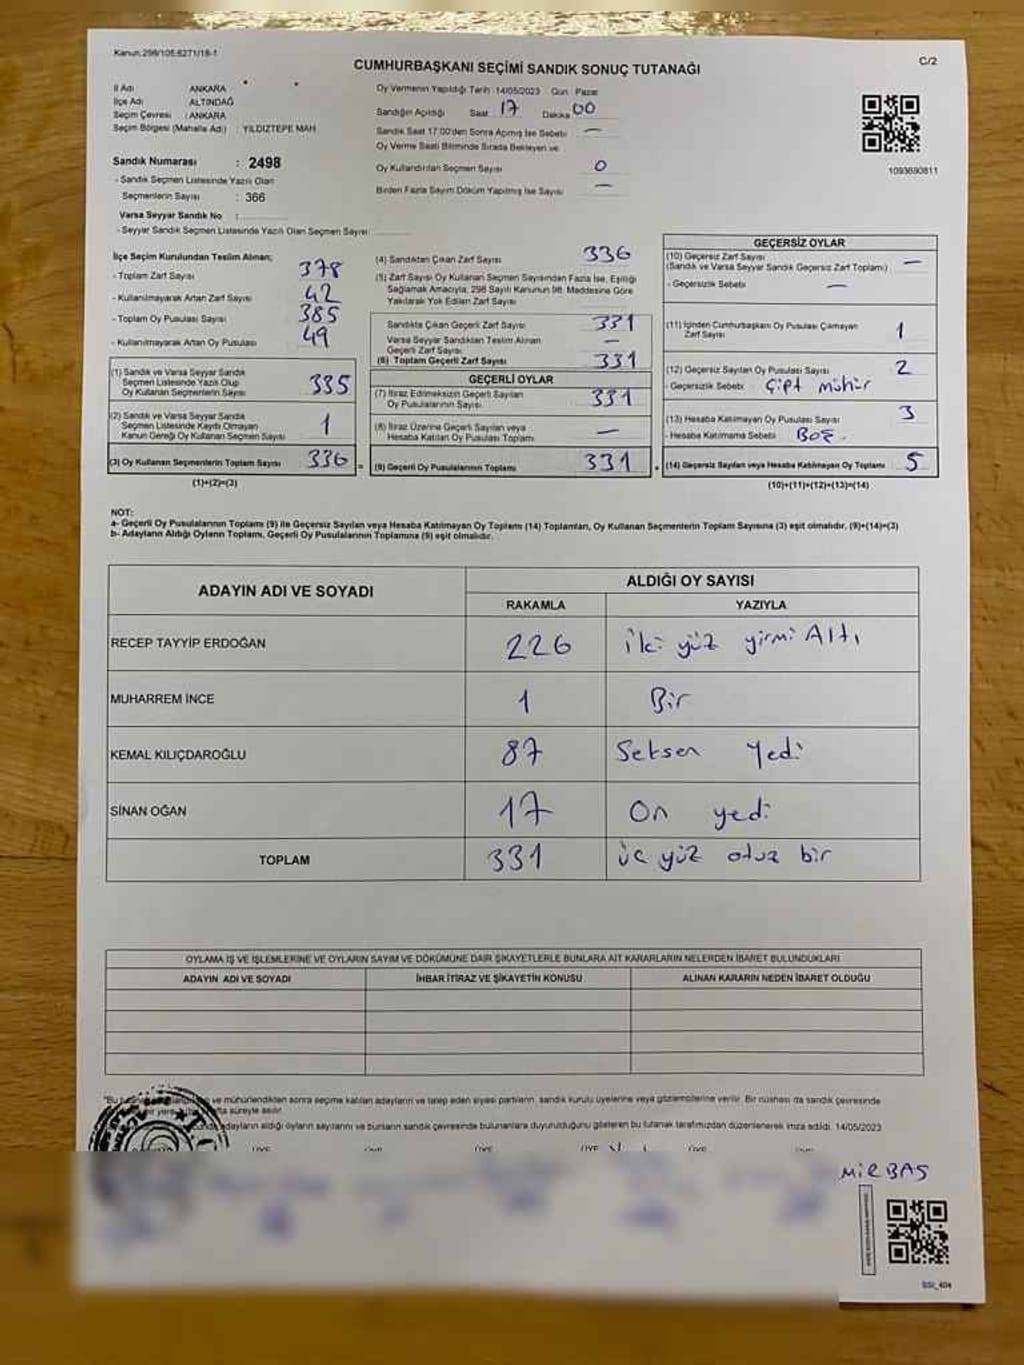 Kanun:298/105.6271/18-1
C/2
CUMHURBAŞKANI SEÇİMİ SANDIK SONUÇ TUTANAĞI
İl Adı ANKARA
İlçe Adı ALTINDAĞ
Seçim Çevresi : ANKARA
Seçim Bölgesi (Mahalle Adı) : YILDIZTEPE MAH
Sandık Numarası : 2498
- Sandık Seçmen Listesinde Yazılı Olan
Seçmenlerin Sayısı : 366
Varsa Seyyar Sandık No :
- Seyyar Sandık Seçmen Listesinde Yazılı Olan Seçmen Sayısı
Oy Vermenin Yapıldığı Tarih :14/05/2023 Gün : Pazar
Sandığın Açıldığı Saat 17 Dakika 00
Sandık Saat 17.00'den Sonra Açmış İse Sebebi —
Oy Verme Saati Bitiminde Sırada Bekleyen ve
Oy Kullandırılan Seçmen Sayısı 0
Birden Fazla Sayım Döküm Yapılmış İse Sayısı —
1093690811
İlçe Seçim Kurulundan Teslim Alınan;
- Toplam Zarf Sayısı 378
- Kullanılmayarak Artan Zarf Sayısı 42
- Toplam Oy Pusulası Sayısı 385
- Kullanılmayarak Artan Oy Pusulası 49
(1) Sandık ve Varsa Seyyar Sandık
Seçmen Listesinde Yazılı Olup
Oy Kullanan Seçmenlerin Sayısı 335
(2) Sandık ve Varsa Seyyar Sandık
Seçmen Listesinde Kaydı Olmayan
Kanun Gereği Oy Kullanan Seçmen Sayısı 1
(3) Oy Kullanan Seçmenlerin Toplam Sayısı 336
(1)+(2)=(3)
(4) Sandıktan Çıkan Zarf Sayısı 336
(5) Zarf Sayısı Oy Kullanan Seçmen Sayısından Fazla İse, Eşitliği
Sağlamak Amacıyla; 298 Sayılı Kanunun 98. Maddesine Göre
Yakılarak Yok Edilen Zarf Sayısı
Sandıkta Çıkan Geçerli Zarf Sayısı 331
Varsa Seyyar Sandıktan Teslim Alınan
Geçerli Zarf Sayısı —
(6) Toplam Geçerli Zarf Sayısı 331
GEÇERLİ OYLAR
(7) İtiraz Edilmeksizin Geçerli Sayılan
Oy Pusulalarının Sayısı 331
(8) İtiraz Üzerine Geçerli Sayılan veya
Hesaba Katılan Oy Pusulası Toplamı —
(9) Geçerli Oy Pusulalarının Toplamı 331
GEÇERSİZ OYLAR
(10) Geçersiz Zarf Sayısı
(Sandık ve Varsa Seyyar Sandık Geçersiz Zarf Toplamı) —
- Geçersizlik Sebebi —
(11) İçinden Cumhurbaşkanı Oy Pusulası Çıkmayan
Zarf Sayısı 1
(12) Geçersiz Sayılan Oy Pusulası Sayısı 2
- Geçersizlik Sebebi Çift mühür
(13) Hesaba Katılmayan Oy Pusulası Sayısı 3
- Hesaba Katılmama Sebebi Boş.
(14) Geçersiz Sayılan veya Hesaba Katılmayan Oy Toplamı 5
(10)+(11)+(12)+(13)=(14)
NOT:
a- Geçerli Oy Pusulalarının Toplamı (9) ile Geçersiz Sayılan veya Hesaba Katılmayan Oy Toplamı (14) Toplamları, Oy Kullanan Seçmenlerin Toplam Sayısına (3) eşit olmalıdır. (9)+(14)=(3)
b- Adayların Aldığı Oyların Toplamı, Geçerli Oy Pusulalarının Toplamına (9) eşit olmalıdır.
ADAYIN ADI VE SOYADI ALDIĞI OY SAYISI
RAKAMLA YAZIYLA
RECEP TAYYİP ERDOĞAN 226 iki yüz yirmi Altı
MUHARREM İNCE 1 Bir
KEMAL KILIÇDAROĞLU 87 Seksen Yedi
SİNAN OĞAN 17 On yedi
TOPLAM 331 üç yüz otuz bir
OYLAMA İŞ VE İŞLEMLERİNE VE OYLARIN SAYIM VE DÖKÜMÜNE DAİR ŞİKAYETLERLE BUNLARA AİT KARARLARIN NELERDEN İBARET BULUNDUKLARI
ADAYIN ADI VE SOYADI İHBAR İTİRAZ VE ŞİKAYETİN KONUSU ALINAN KARARIN NEDEN İBARET OLDUĞU
ve mühürlendikten sonra seçime katılan adayların ve talep eden siyasi partilerin, sandık kurulu üyelerine veya gözlemcilerine verilir. Bir nüshası da sandık çevresinde
süreyle asılır
adayların aldığı oyların sayılarını ve bunların sandık çevresinde bulunanlara duyurulduğunu gösteren bu tutanak tarafımızdan düzenlenerek imza edildi. 14/05/2023
MİRBAŞ
SSI_404